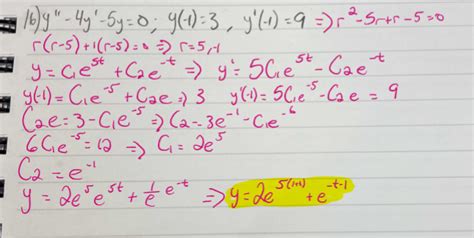 16) y'' - 4y' - 5y = 0; y(-1) = 3, y'(-1) = 9 => r² - 5r + r - 5 = 0
r(r-5) + 1(r-5) = 0 => r = 5, -1
y = C₁e^{5t} + C₂e^{-t} => y' = 5C₁e^{5t} - C₂e^{-t}
y(-1) = C₁e^{-5} + C₂e => 3 y'(-1) = 5C₁e^{-5} - C₂e = 9
C₂e = 3 - C₁e^{-5} => C₂ = 3e^{-1} - C₁e^{-6}
6C₁e^{-5} = 12 => C₁ = 2e^5
C₂ = e^{-1}
y = 2e^5 e^{5t} + 1/e e^{-t} => y = 2e^{5(t+1)} + e^{-t-1}